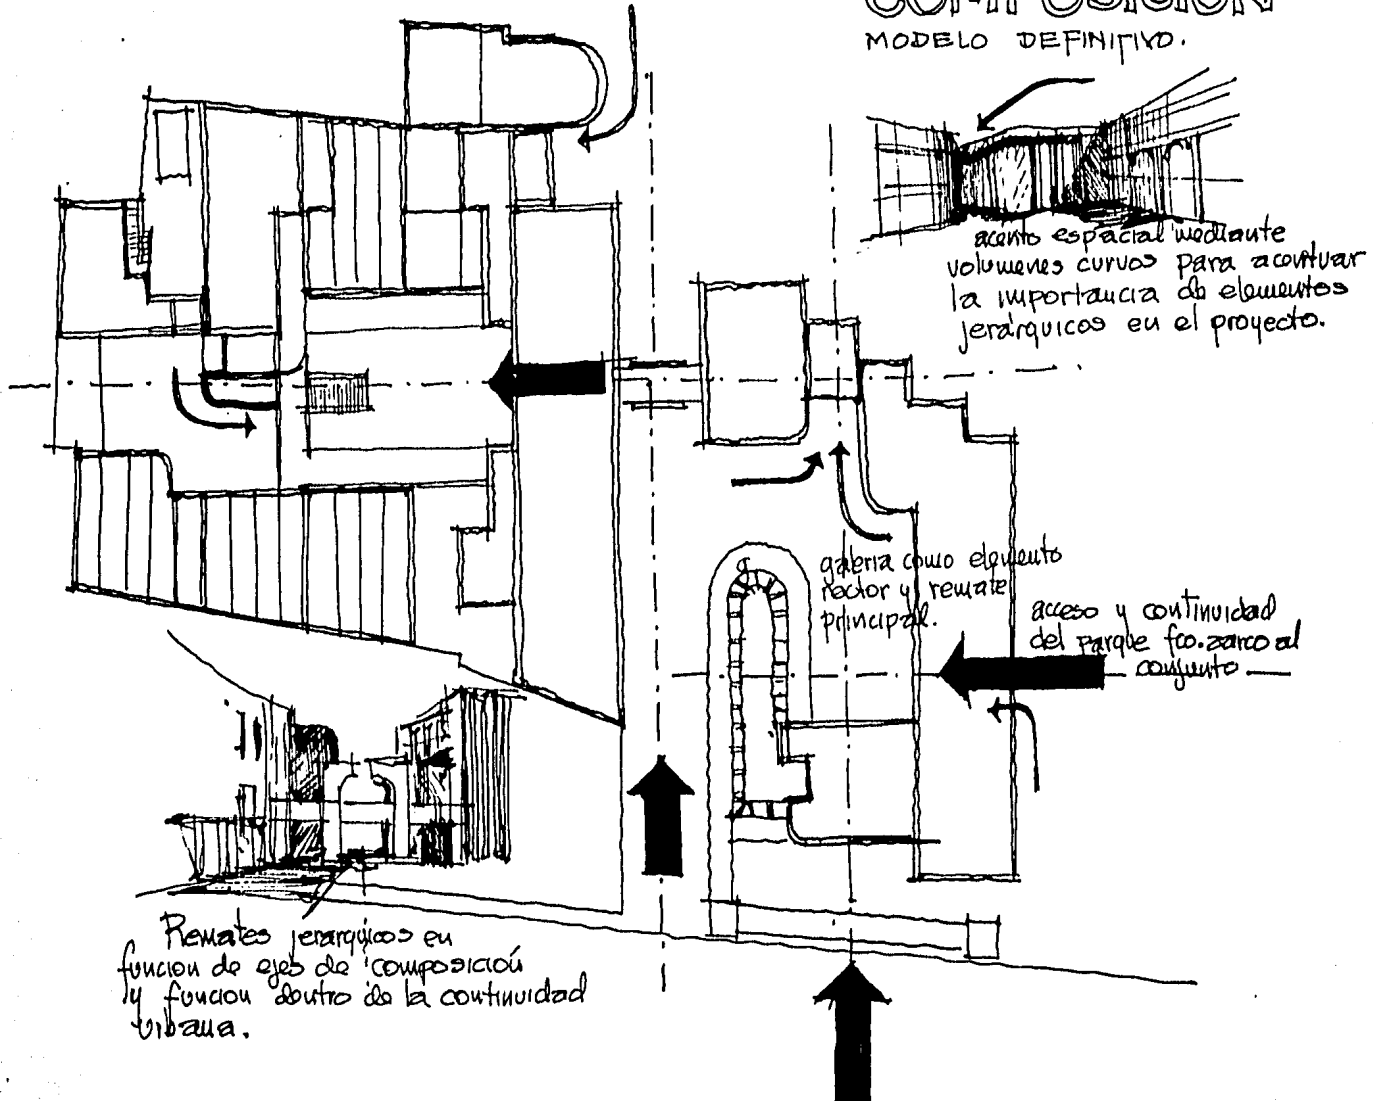 COMPOSICION
MODELO DEFINITIVO.
acento espacial mediante
volumenes curvos para acentuar
la importancia de elementos
jerárquicos en el proyecto.
galeria como elemento
rector y remate
principal.
acceso y continuidad
del parque fco. zarco al
conjunto
Remates jerarquicos en
funcion de ejes de composición
y funcion dentro de la continuidad
urbana.